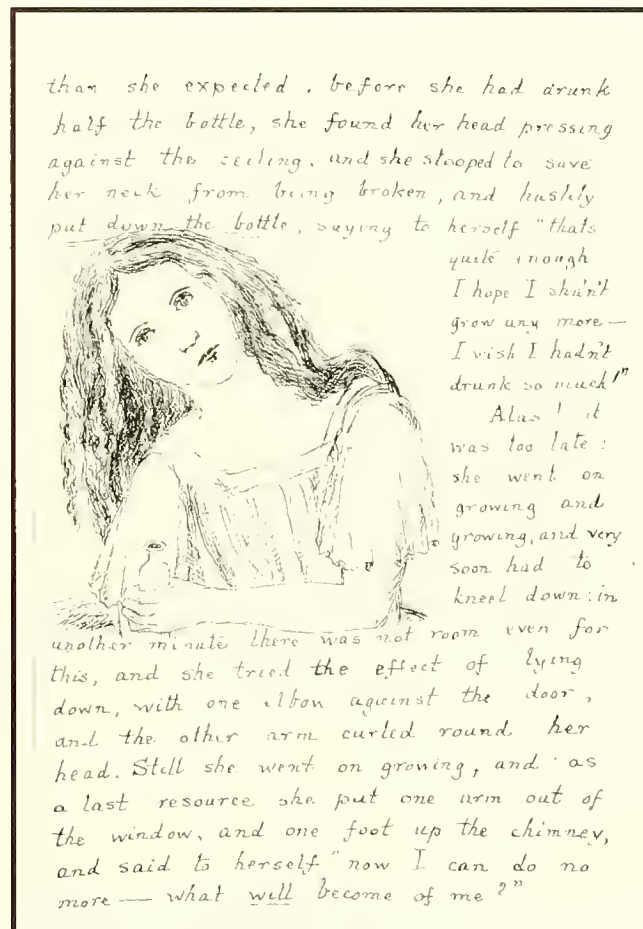 than she expected. before she had drunk
half the bottle, she found her head pressing
against the ceiling, and she stooped to save
her neck from being broken, and hastily
put down the bottle, saying to herself "thats
quite enough
I hope I shan't
grow any more—
I wish I hadn't
drunk so much!"
Alas! it
was too late:
she went on
growing and
growing, and very
soon had to
kneel down: in
another minute there was not room even for
this, and she tried the effect of lying
down, with one elbow against the door,
and the other arm curled round her
head. Still she went on growing, and as
a last resource she put one arm out of
the window, and one foot up the chimney,
and said to herself "now I can do no
more — what will become of me?"